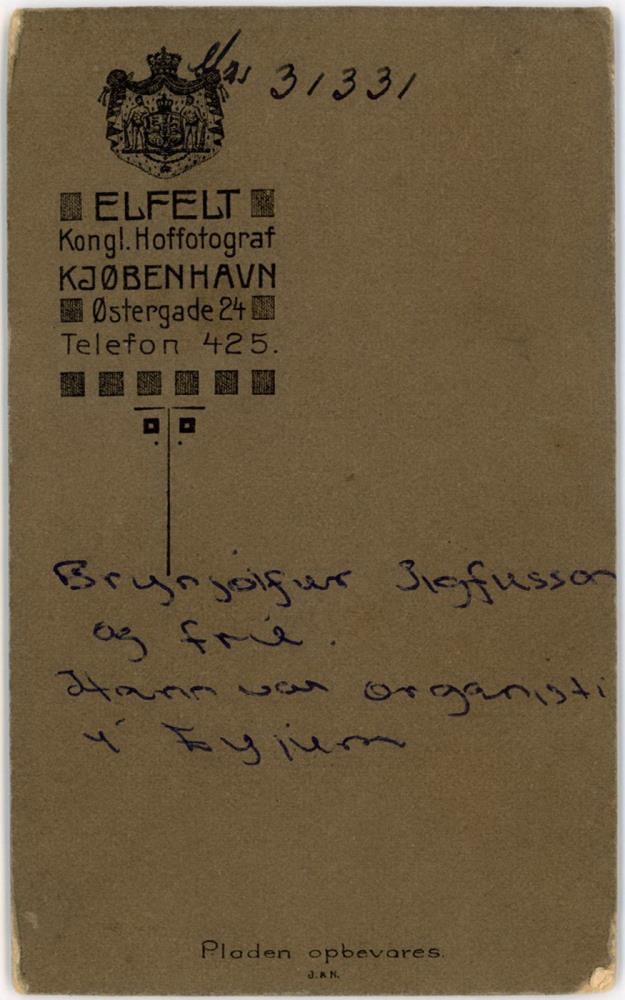 31331
ELFELT
Kongl. Hoffotograf
KJØBENHAVN
Østergade 24
Telefon 425.
Brynjólfur Sigfusson
og frú.
Hann var organisti
í Eyjum
Pladen opbevares.
J. & N.